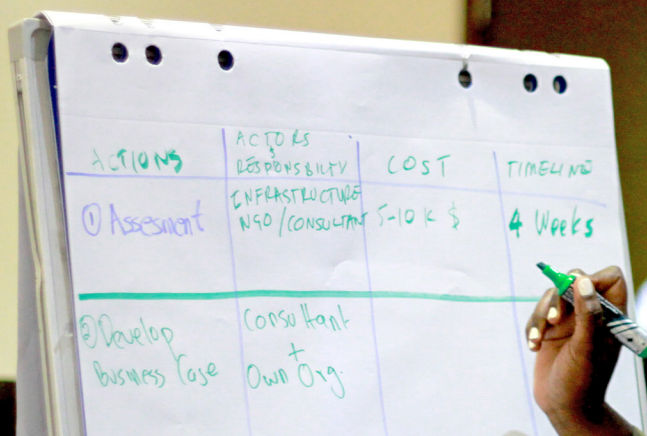 ACTIONS
ACTORS
&
RESPONSIBILITY
COST
TIMELINE
① Assesment
INFRASTRUCTURE
NGO/CONSULTANT
5-10 K $
4 Weeks
② Develop
Business Case
Consultant
+
Own Org.